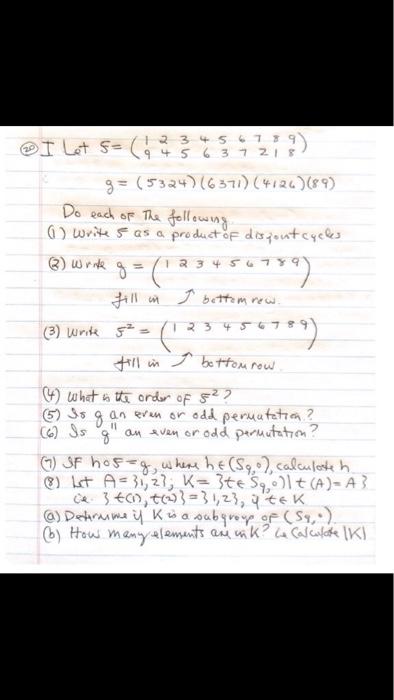 (20) I Let 5 = ( 1 2 3 4 5 6 7 8 9 )
9 4 5 6 3 7 2 1 8
g = (5324)(6371)(4126)(89)
Do each of The following
(1) Write 5 as a product of disjoint cycles
(2) Write g = ( 1 2 3 4 5 6 7 8 9 )
fill in ↗ bottom row.
(3) Write 5² = ( 1 2 3 4 5 6 7 8 9 )
fill in ↗ bottom row.
(4) What is the order of 5²?
(5) Is g an even or odd permutation?
(6) Is g" an even or odd permutation?
(7) If h∘5 = g, where h ∈ (S9,∘), calculate h.
(8) Let A = {1,2}; K = {t ∈ S9,∘) | t(A) = A}
i.e. {t(1), t(2)} = {1,2}, if t ∈ K
(a) Determine if K is a subgroup of (S9,∘).
(b) How many elements are in K? ie Calculate |K|